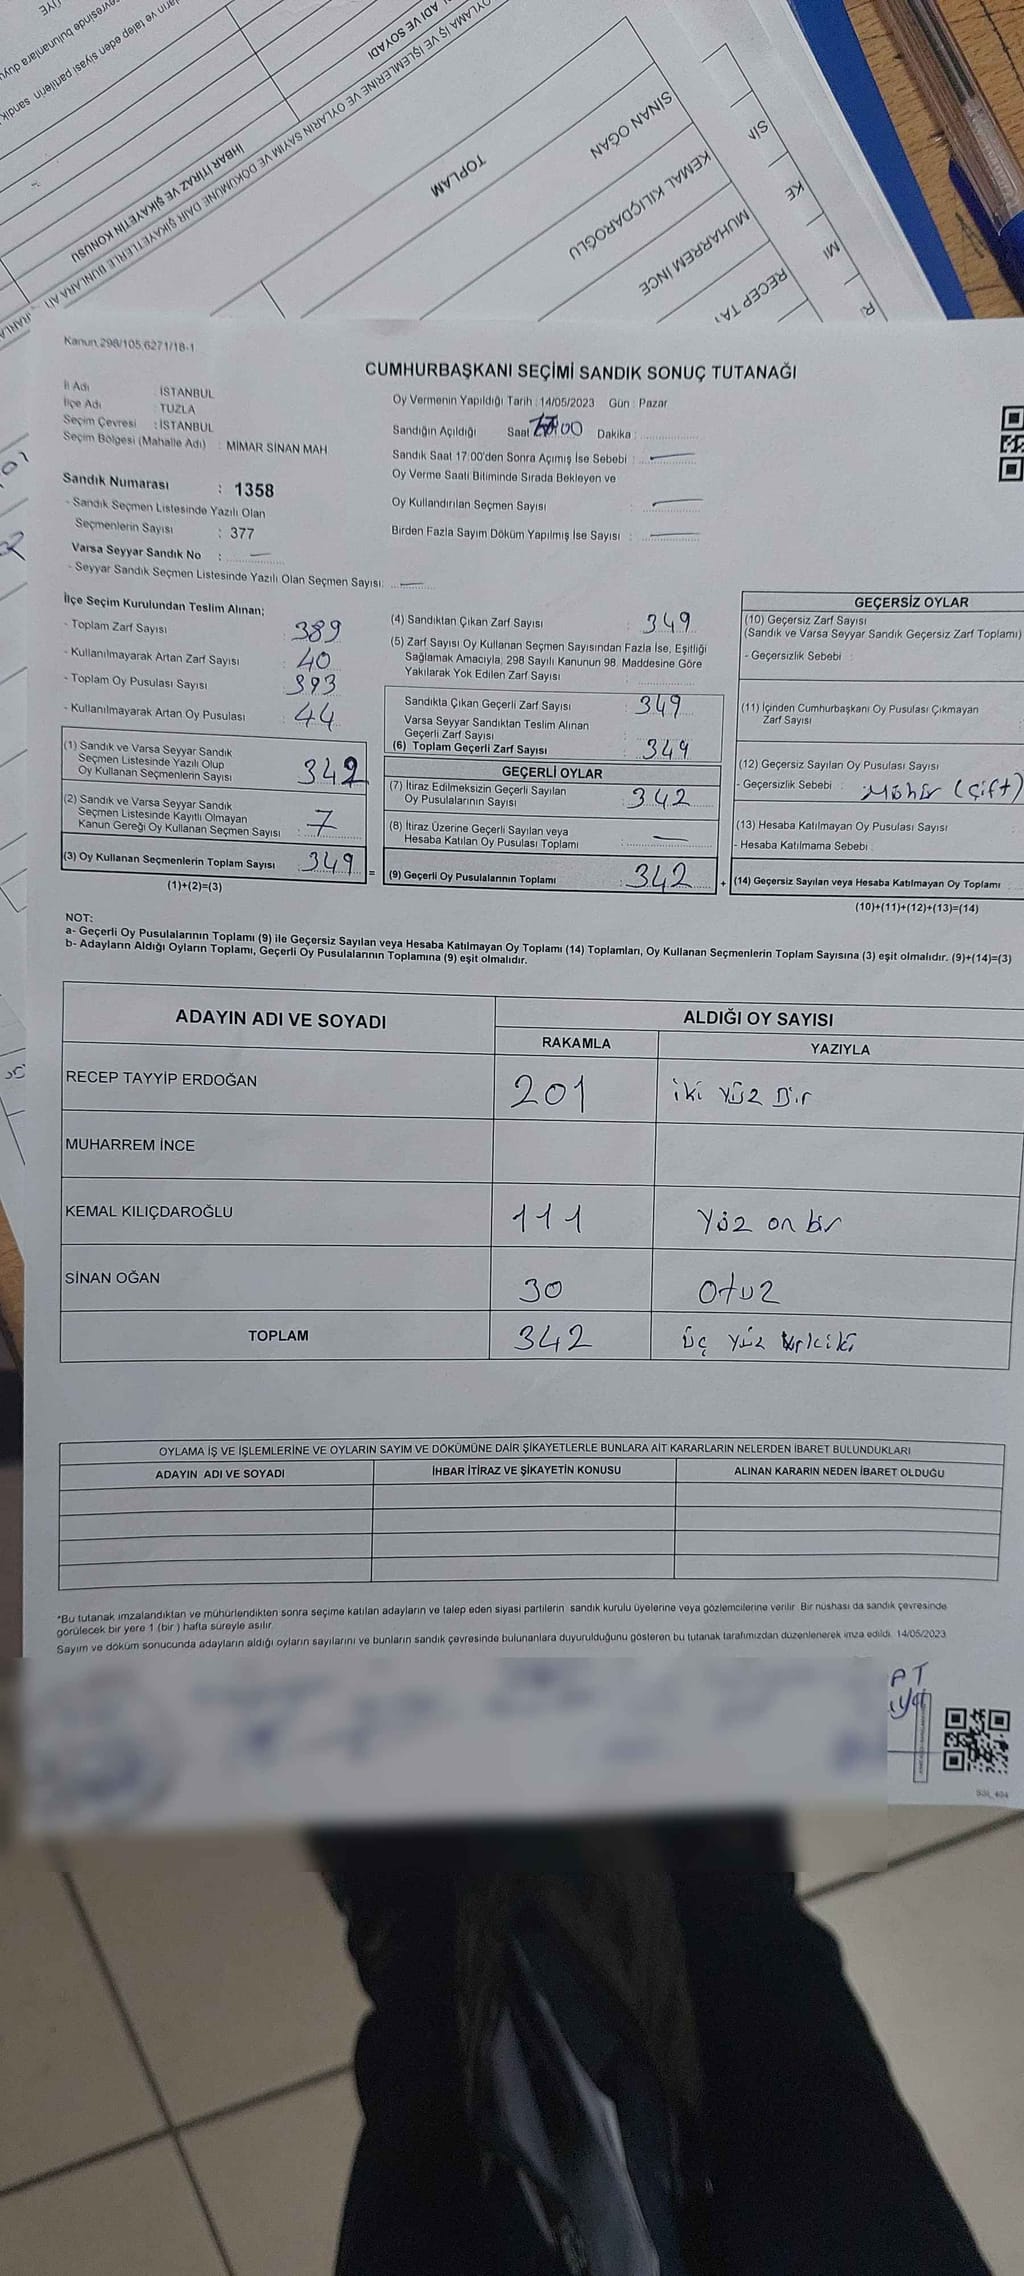 ADI VE SOYADI
OYLAMA İŞ VE İŞLEMLERİNE VE OYLARIN SAYIM VE DÖKÜMÜNE DAİR ŞİKAYETLERLE BUNLARA Aİ
İHBAR İTİRAZ VE ŞİKAYETİN KONUSU
TOPLAM
SİNAN OĞAN
KEMAL KILIÇDAROĞLU
MUHARREM İNCE
RECEP TA
Sİ
KE
MI
R
Kanun 298/105,6271/18-1
CUMHURBAŞKANI SEÇİMİ SANDIK SONUÇ TUTANAĞI
İl Adı : İSTANBUL
İlçe Adı : TUZLA
Seçim Çevresi : İSTANBUL
Seçim Bölgesi (Mahalle Adı) : MİMAR SİNAN MAH
Oy Vermenin Yapıldığı Tarih : 14/05/2023 Gün : Pazar
Sandığın Açıldığı Saat 17:00 Dakika :
Sandık Saat 17:00'den Sonra Açımış İse Sebebi : —
Oy Verme Saati Bitiminde Sırada Bekleyen ve
Oy Kullandırılan Seçmen Sayısı : —
Birden Fazla Sayım Döküm Yapılmış İse Sayısı : —
Sandık Numarası : 1358
- Sandık Seçmen Listesinde Yazılı Olan
Seçmenlerin Sayısı : 377
Varsa Seyyar Sandık No : —
- Seyyar Sandık Seçmen Listesinde Yazılı Olan Seçmen Sayısı: —
İlçe Seçim Kurulundan Teslim Alınan;
- Toplam Zarf Sayısı : 389
- Kullanılmayarak Artan Zarf Sayısı : 40
- Toplam Oy Pusulası Sayısı : 393
- Kullanılmayarak Artan Oy Pusulası : 44
(1) Sandık ve Varsa Seyyar Sandık
Seçmen Listesinde Yazılı Olup
Oy Kullanan Seçmenlerin Sayısı : 342
(2) Sandık ve Varsa Seyyar Sandık
Seçmen Listesinde Kayıtlı Olmayan
Kanun Gereği Oy Kullanan Seçmen Sayısı : 7
(3) Oy Kullanan Seçmenlerin Toplam Sayısı : 349
(1)+(2)=(3)
=
(4) Sandıktan Çıkan Zarf Sayısı : 349
(5) Zarf Sayısı Oy Kullanan Seçmen Sayısından Fazla İse, Eşitliği
Sağlamak Amacıyla, 298 Sayılı Kanunun 98. Maddesine Göre
Yakılarak Yok Edilen Zarf Sayısı :
Sandıkta Çıkan Geçerli Zarf Sayısı : 349
Varsa Seyyar Sandıktan Teslim Alınan
Geçerli Zarf Sayısı :
(6) Toplam Geçerli Zarf Sayısı : 349
GEÇERLİ OYLAR
(7) İtiraz Edilmeksizin Geçerli Sayılan
Oy Pusulalarının Sayısı : 342
(8) İtiraz Üzerine Geçerli Sayılan veya
Hesaba Katılan Oy Pusulası Toplamı : —
(9) Geçerli Oy Pusulalarının Toplamı : 342
+
GEÇERSİZ OYLAR
(10) Geçersiz Zarf Sayısı
(Sandık ve Varsa Seyyar Sandık Geçersiz Zarf Toplamı)
- Geçersizlik Sebebi :
(11) İçinden Cumhurbaşkanı Oy Pusulası Çıkmayan
Zarf Sayısı
(12) Geçersiz Sayılan Oy Pusulası Sayısı
- Geçersizlik Sebebi : Mühür (Çift)
(13) Hesaba Katılmayan Oy Pusulası Sayısı :
- Hesaba Katılmama Sebebi :
(14) Geçersiz Sayılan veya Hesaba Katılmayan Oy Toplamı :
(10)+(11)+(12)+(13)=(14)
NOT:
a- Geçerli Oy Pusulalarının Toplamı (9) ile Geçersiz Sayılan veya Hesaba Katılmayan Oy Toplamı (14) Toplamları, Oy Kullanan Seçmenlerin Toplam Sayısına (3) eşit olmalıdır. (9)+(14)=(3)
b- Adayların Aldığı Oyların Toplamı, Geçerli Oy Pusulalarının Toplamına (9) eşit olmalıdır.
ADAYIN ADI VE SOYADI
ALDIĞI OY SAYISI
RAKAMLA YAZIYLA
RECEP TAYYİP ERDOĞAN 201 iki yüz Bir
MUHARREM İNCE
KEMAL KILIÇDAROĞLU 111 Yüz on bir
SİNAN OĞAN 30 Otuz
TOPLAM 342 üç yüz
OYLAMA İŞ VE İŞLEMLERİNE VE OYLARIN SAYIM VE DÖKÜMÜNE DAİR ŞİKAYETLERLE BUNLARA AİT KARARLARIN NELERDEN İBARET BULUNDUKLARI
ADAYIN ADI VE SOYADI İHBAR İTİRAZ VE ŞİKAYETİN KONUSU ALINAN KARARIN NEDEN İBARET OLDUĞU
*Bu tutanak imzalandıktan ve mühürlendikten sonra seçime katılan adayların ve talep eden siyasi partilerin sandık kurulu üyelerine veya gözlemcilerine verilir. Bir nüshası da sandık çevresinde
görülecek bir yere 1 (bir ) hafta süreyle asılır.
Sayım ve döküm sonucunda adayların aldığı oyların sayılarını ve bunların sandık çevresinde bulunanlara duyurulduğunu gösteren bu tutanak tarafımızdan düzenlenerek imza edildi. 14/05/2023